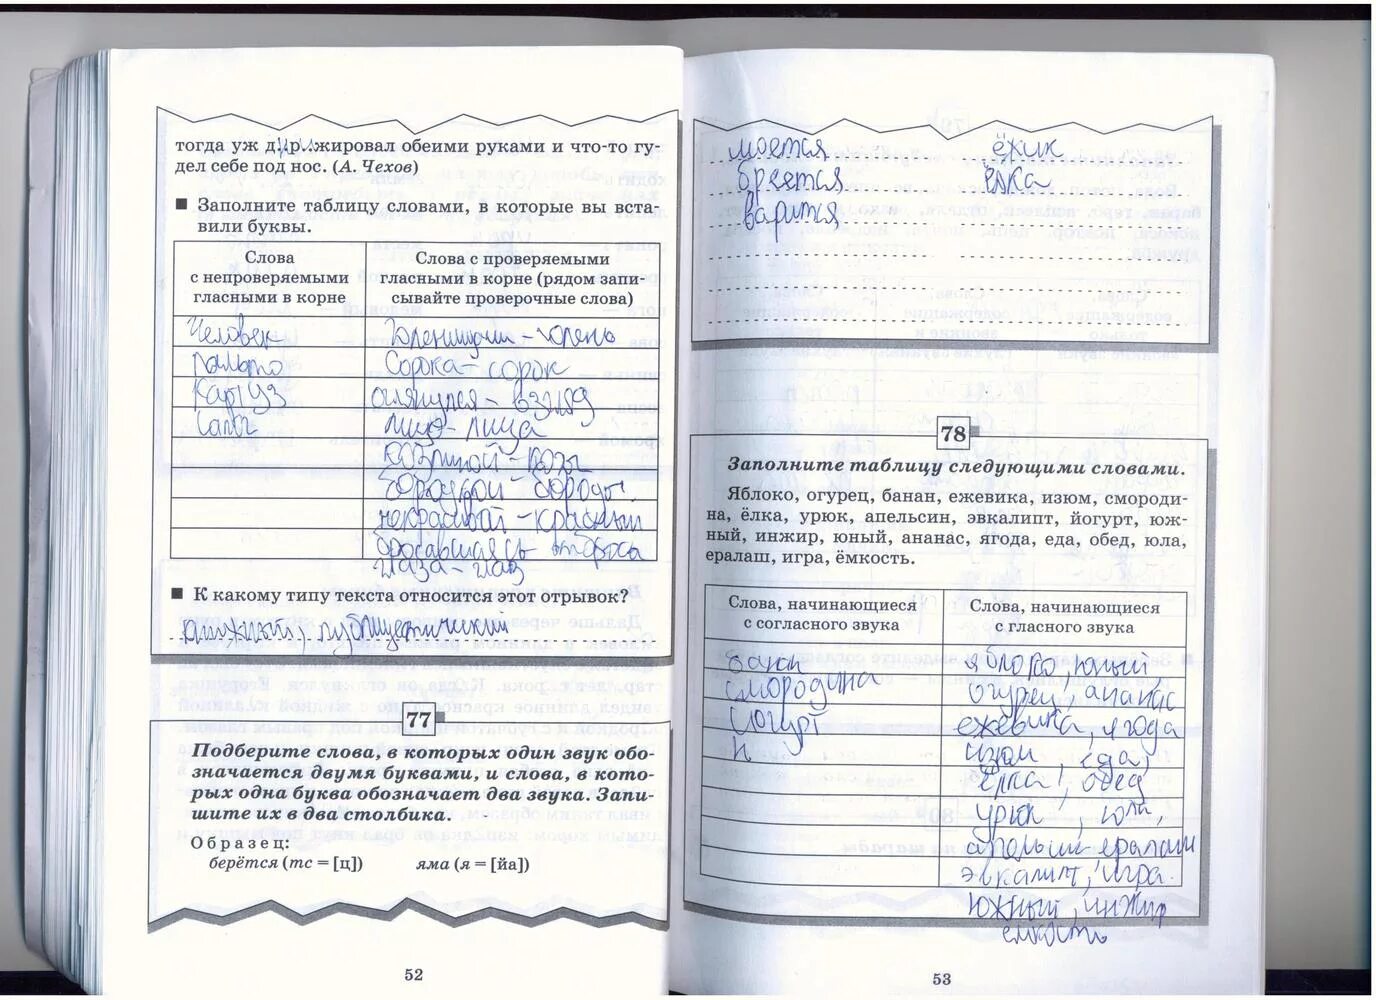 тогда уж дирижировал обеими руками и что-то гу-
дел себе под нос. (А. Чехов)
■ Заполните таблицу словами, в которые вы вста-
вили буквы.
Слова
с непроверяемыми
гласными в корне
Слова с проверяемыми
гласными в корне (рядом запи-
сывайте проверочные слова)
Человек
пальто
Картуз
Сапог
- голень
Сорока - сорок
оглянулся - взгляд
лицо - лица
козлиной - козы
бородкой - бороды.
некрасивый - красный
бросавшаясь
глаза - глаз
■ К какому типу текста относится этот отрывок?
книжный, публицистический
77
Подберите слова, в которых один звук обо-
значается двумя буквами, и слова, в кото-
рых одна буква обозначает два звука. Запи-
шите их в два столбика.
Образец:
берётся (тс = [ц]) яма (я = [йа])
52
моется ёжик
бреется ёлка
варится
78
Заполните таблицу следующими словами.
Яблоко, огурец, банан, ежевика, изюм, смороди-
на, ёлка, урюк, апельсин, эвкалипт, йогурт, юж-
ный, инжир, юный, ананас, ягода, еда, обед, юла,
ералаш, игра, ёмкость.
Слова, начинающиеся
с согласного звука
Слова, начинающиеся
с гласного звука
банан яблоко, юный
смородина огурец, ананас
йогурт ежевика, ягода
и изюм, еда,
ёлка, обед
урюк, юла,
ералаш
эвкалипт, игра.
южный, инжир
ёмкость
53